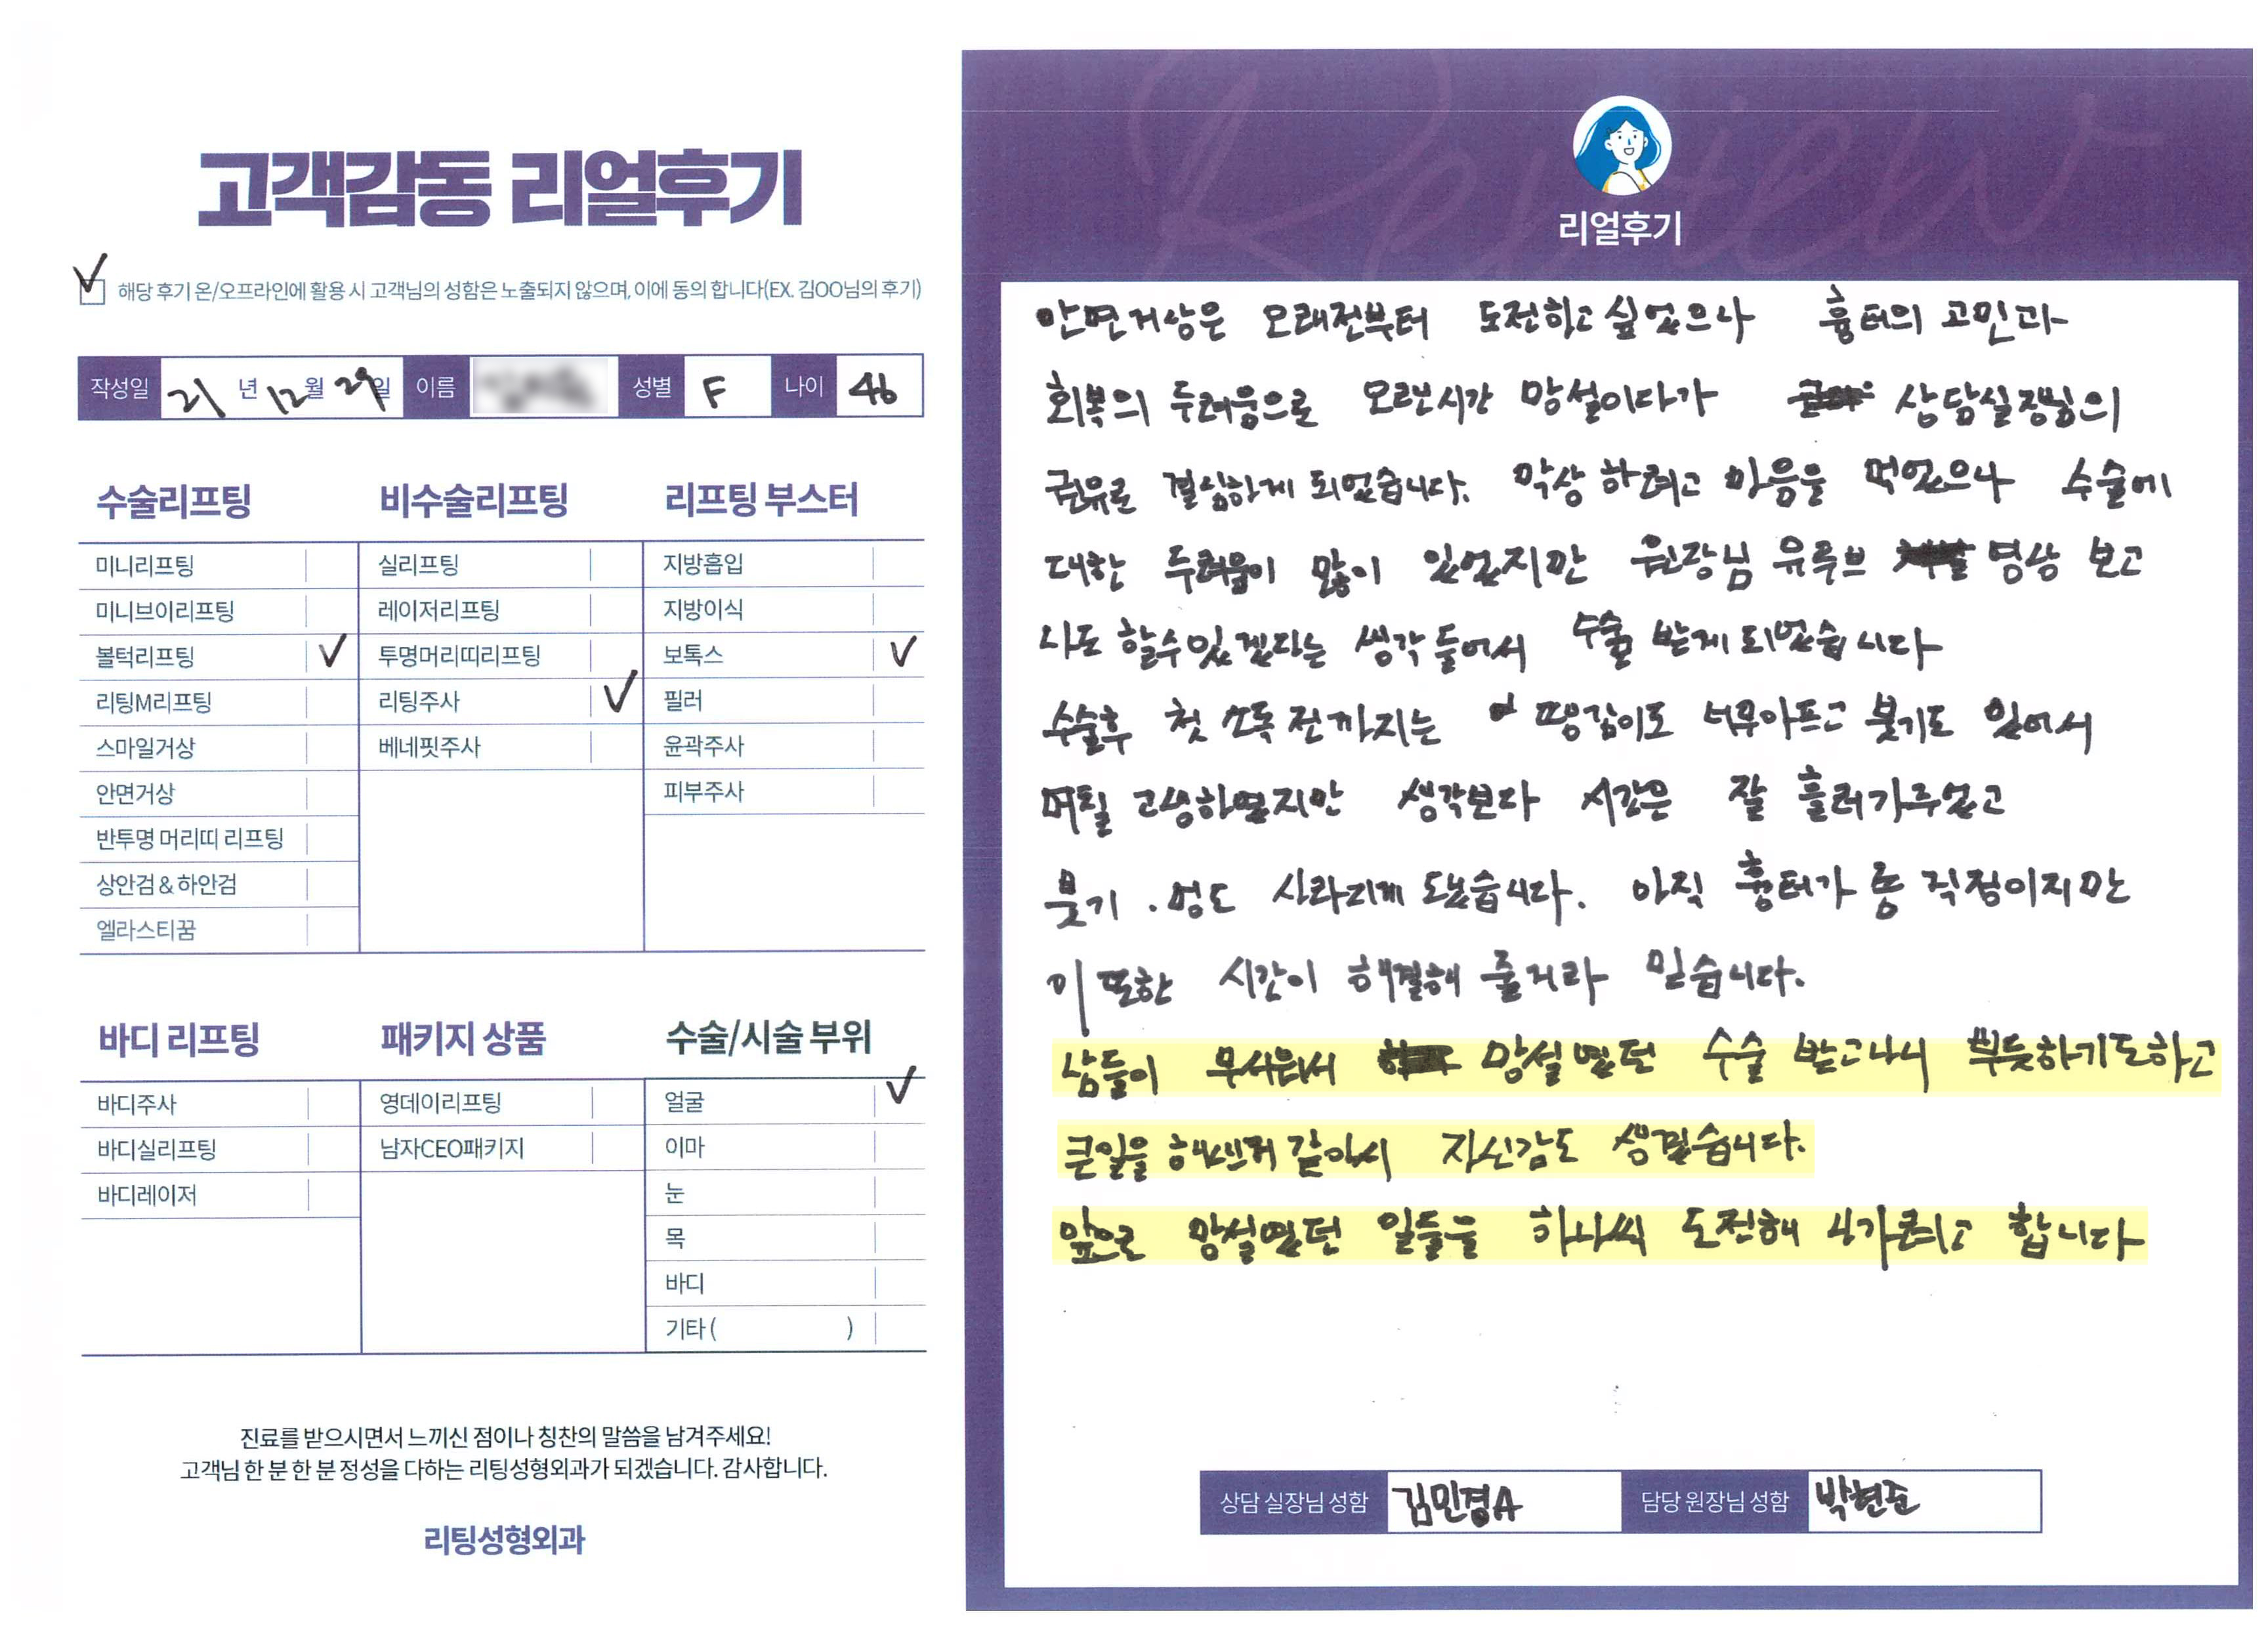 고객감동 리얼후기
해당 후기 온/오프라인에 활용 시 고객님의 성함은 노출되지 않으며, 이에 동의 합니다(EX. 김OO님의 후기)
작성일 21 년 12 월 29 일 이름 성별 F 나이 46
수술리프팅 비수술리프팅 리프팅 부스터
미니리프팅 실리프팅 지방흡입
미니브이리프팅 레이저리프팅 지방이식
볼턱리프팅 투명머리띠리프팅 보톡스
리팅M리프팅 리팅주사 필러
스마일거상 베네핏주사 윤곽주사
안면거상 피부주사
반투명 머리띠 리프팅
상안검 & 하안검
엘라스티꿈
바디 리프팅 패키지 상품 수술/시술 부위
바디주사 영데이리프팅 얼굴
바디실리프팅 남자CEO패키지 이마
바디레이저 눈
목
바디
기타 ( )
진료를 받으시면서 느끼신 점이나 칭찬의 말씀을 남겨주세요!
고객님 한 분 한 분 정성을 다하는 리팅성형외과가 되겠습니다. 감사합니다.
리팅성형외과
Review
리얼후기
안면거상은 오래전부터 도전하고 싶었으나 흉터의 고민과
회복의 두려움으로 오랜시간 망설이다가 상담실장님의
권유로 결심하게 되었습니다. 막상 하려고 마음을 먹었으나 수술에
대한 두려움이 많이 있었지만 원장님 유튜브 영상 보고
나도 할수있겠다는 생각 들어서 수술 받게 되었습니다
수술후 첫 소독 전까지는 땡김이도 너무아프고 붓기도 있어서
며칠 고생하였지만 생각보다 시간은 잘 흘러가주었고
붓기 . 멍도 사라지게 됐습니다. 아직 흉터가 좀 걱정이지만
이 또한 시간이 해결해 줄거라 믿습니다.
남들이 무서워서 망설였던 수술 받고나니 뿌듯하기도하고
큰일을 해낸거 같아서 자신감도 생겼습니다.
앞으로 망설였던 일들을 하나씩 도전해 나가려고 합니다
상담 실장님 성함 김민경A 담당 원장님 성함 박현준